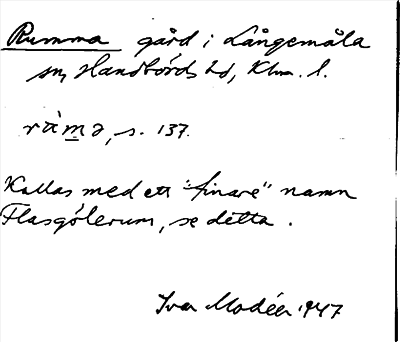 Rumma gård i Långemåla
sn, Handbörds hd, Klm. l.
ràmə, s. 137.
Kallas med ett "finare" namn
Flasgölerum, se detta.
Ivar Modéer 1947